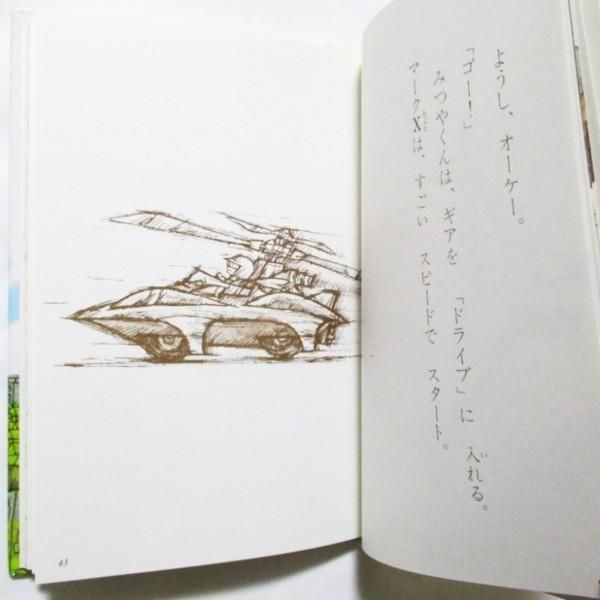 ようし、オーケー。
「ゴー！」
みつやくんは、ギアを 「ドライブ」に 入れる。
マークXは、すごい スピードで スタート。
43